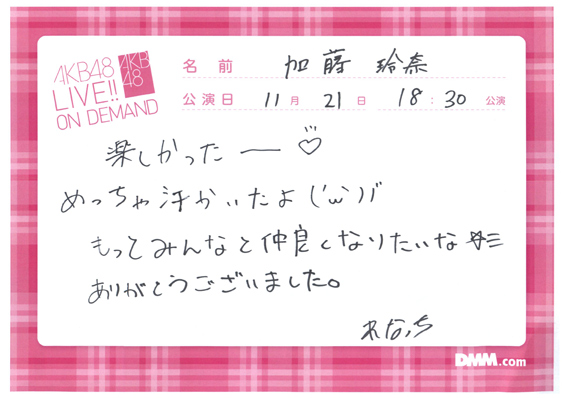 AKB48
LIVE!!
ON DEMAND
AKB
48
名前 加藤 玲奈
公演日 11月 21日 18:30 公演
楽しかったー♡
めっちゃ汗かいたよ('ω')ノ
もってみんなと仲良くなりたいな☆彡
ありがとうございました。
れなっち
DMM.com